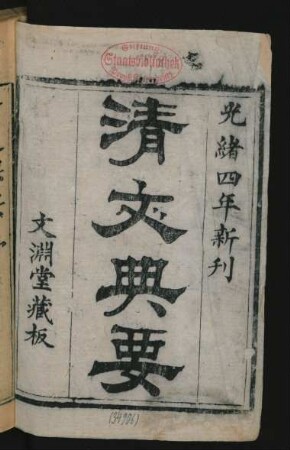 光緒四年新刊
清文典要
文淵堂藏板
Stiftung
Staatsbibliothek